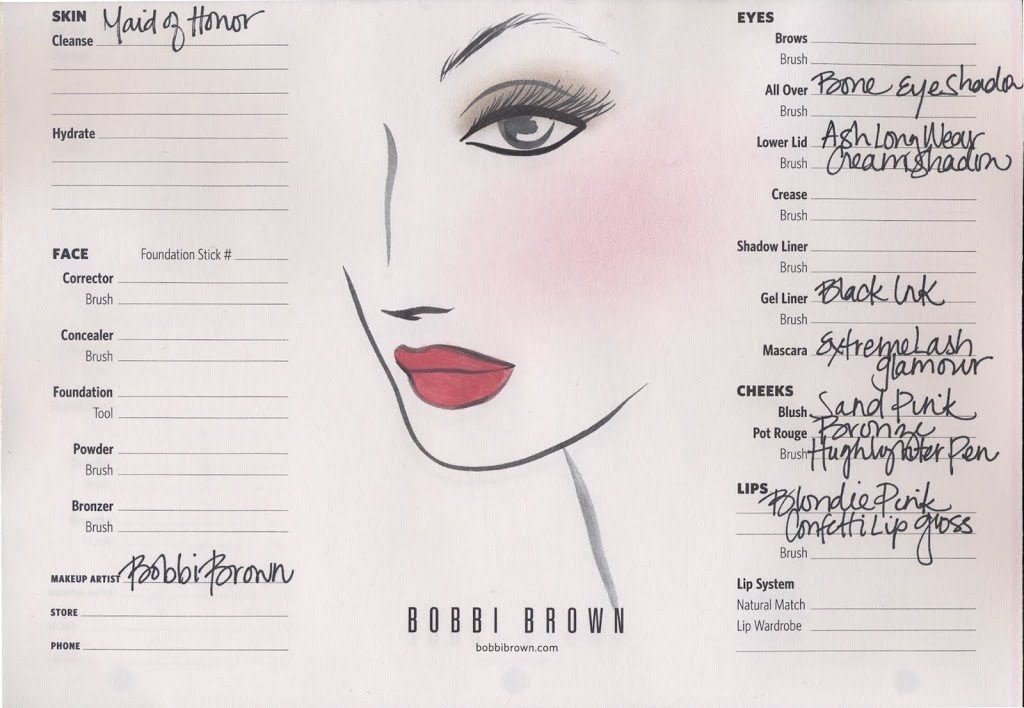 SKIN Maid of Honor
Cleanse
Hydrate
FACE Foundation Stick #
Corrector
Brush
Concealer
Brush
Foundation
Tool
Powder
Brush
Bronzer
Brush
MAKEUP ARTIST Bobbi Brown
STORE
PHONE
BOBBI BROWN
bobbibrown.com
EYES
Brows
Brush
All Over Bone Eye Shadow
Brush
Lower Lid Ash Long Wear
Brush Cream Shadow
Crease
Brush
Shadow Liner
Brush
Gel Liner Black Ink
Brush
Mascara Extreme Lash
glamour
CHEEKS
Blush Sand Pink
Pot Rouge Bronze
Brush Highlighter Pen
LIPS Blondie Pink
Confetti Lip gloss
Brush
Lip System
Natural Match
Lip Wardrobe